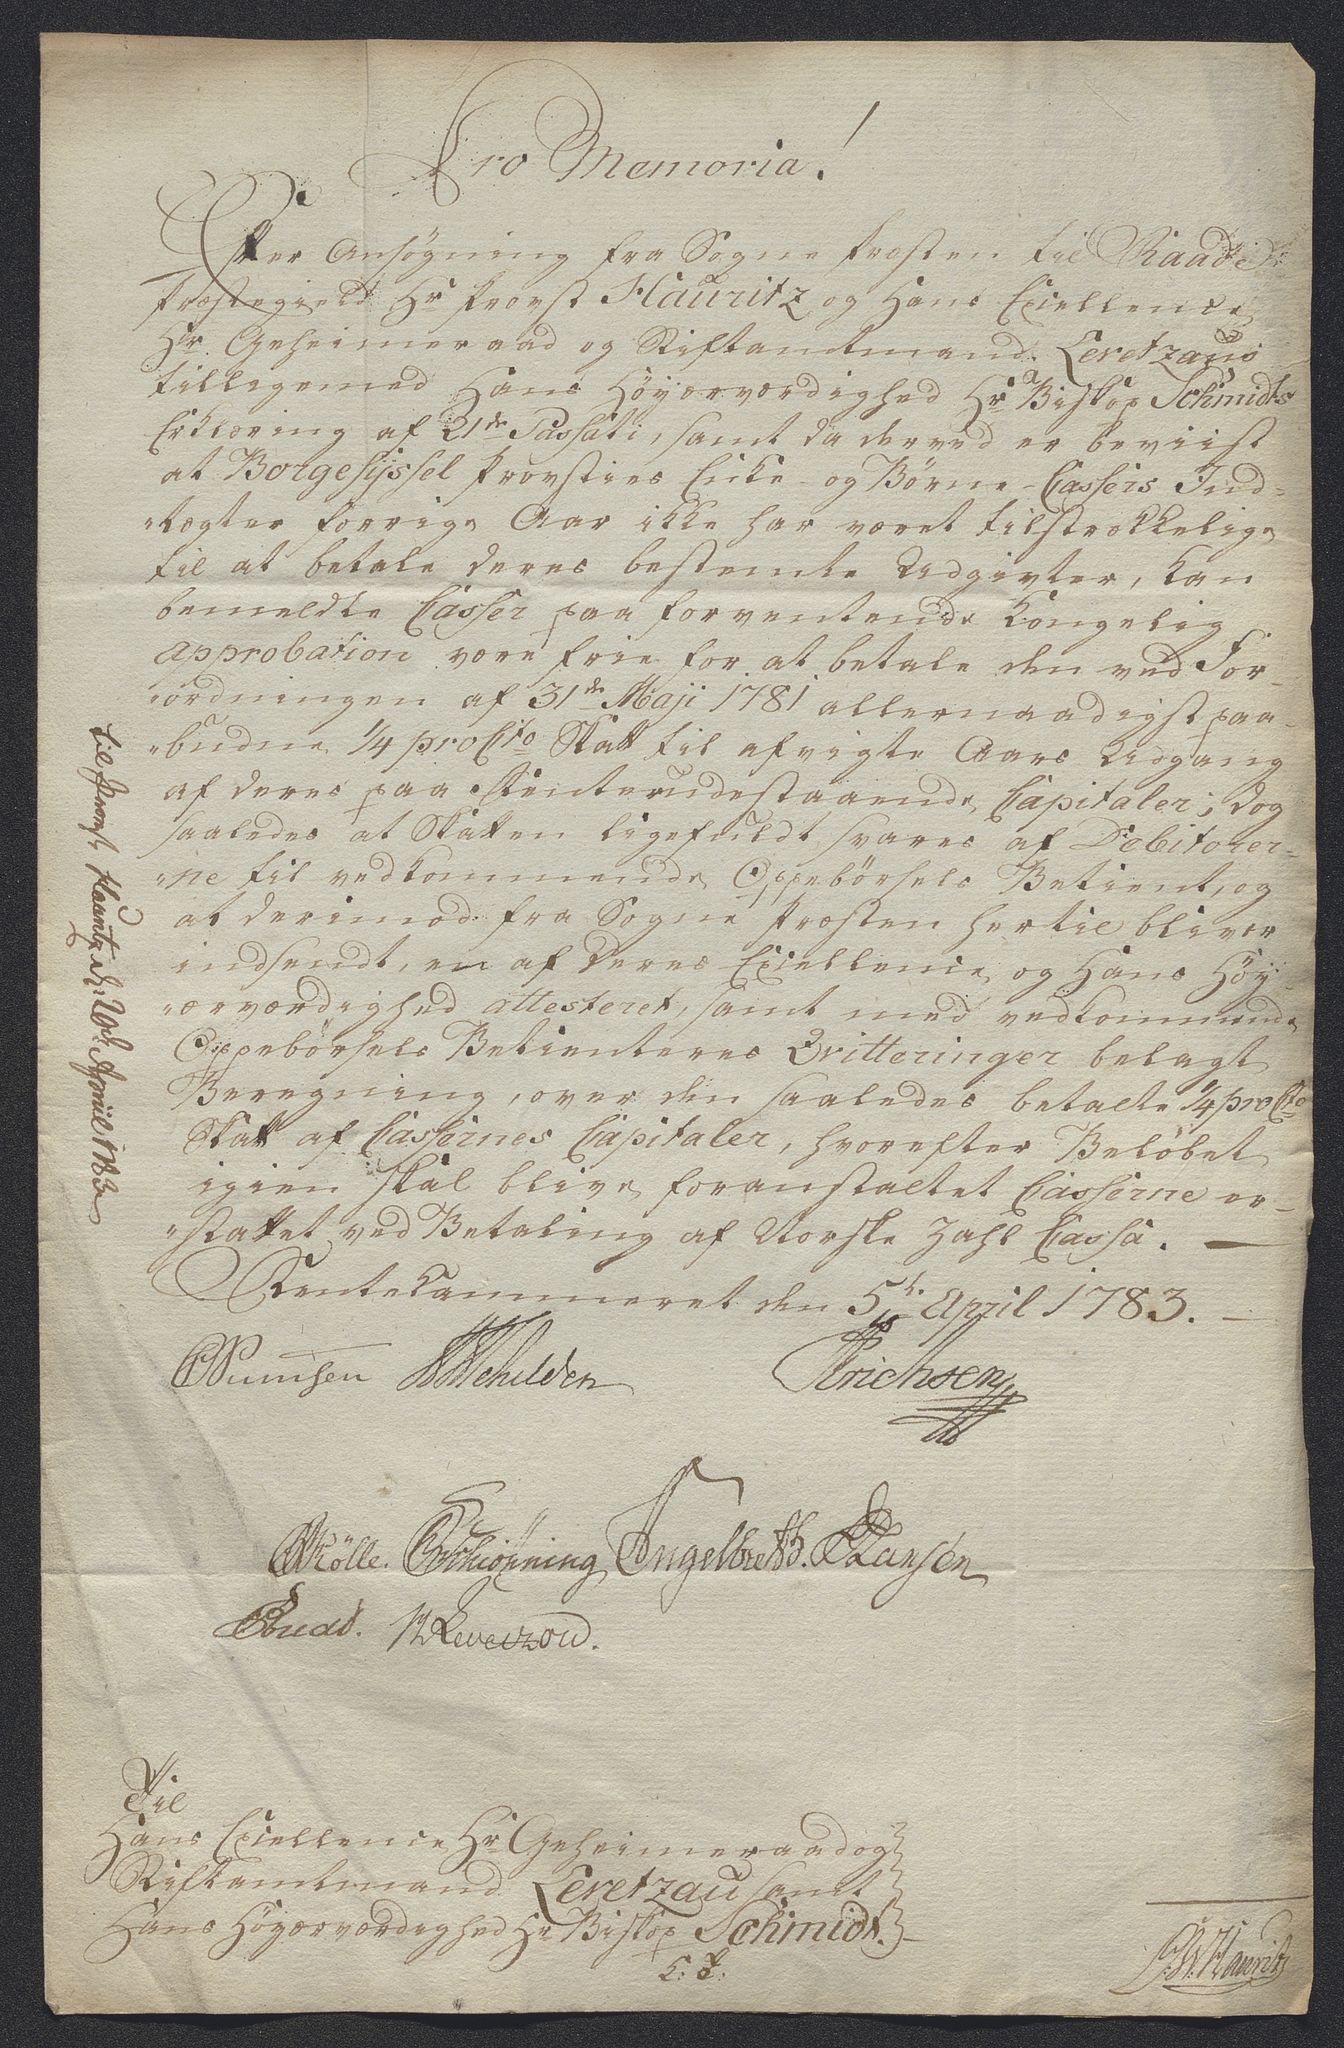 Pro Memoria!
Efter Ansøgning fra Sogne Præsten til Raade
Præstegield Hr Provst Hauritz og Hans Excellence
Hr. Geheimeraad og Stiftamtmand Levetzaus
tilligemed Hans Höyærværdighed Hr Biskop Schmidts
Erklæring af 21de Passati, samt da derved er beviist
at Borgesyssel Provsties Enke- og Børne-Cassers Ind-
-tægter forrige Aar ikke har været tilstrækkelige
til at betale deres bestemte Udgivter, kan
bemeldte Casser paa forventende Kongelig
approbation være frie for at betale den ved For-
-ordningen af 31de Maji 1781 allernaadigst paa-
-budne 1/4 pro Cto Skatt til afvigte Aars Udgang
af deres paa Rente udestaaende Capitaler; dog
saaledes at Skatten ligefuldt svares af Debitorer-
-ne til vedkommende Oppebørsels Betient, og
at derimod fra Sogne Præsten hertil bliver
indsendt, en af Deres Excellence og Hans Höy-
-ærværdighed attesteret, samt med vedkommende
Oppebørsels Betienteres Qvitteringer belagt
Beregning over den saaledes betalte 1/4 pro Cto
Skatt af Cassernes Capitaler, hvorefter Beløbet
igien skal blive foranstaltet Casserne er-
-stattet ved Betaling af Norske Zahl Cassa.
Rentekammeret den 5te April 1783.
Schilden Erichsen
Mölle. Schiønning Engelbreth. Hansen
M Leverzou.
Til
Hans Excellence Hr Geheimeraad og
Stiftamtmand Levetzau samt
Hans Höyærværdighed Hr Biskop Schmidt.
Hauritz
til Provst Hauritz d. 26de April 1783